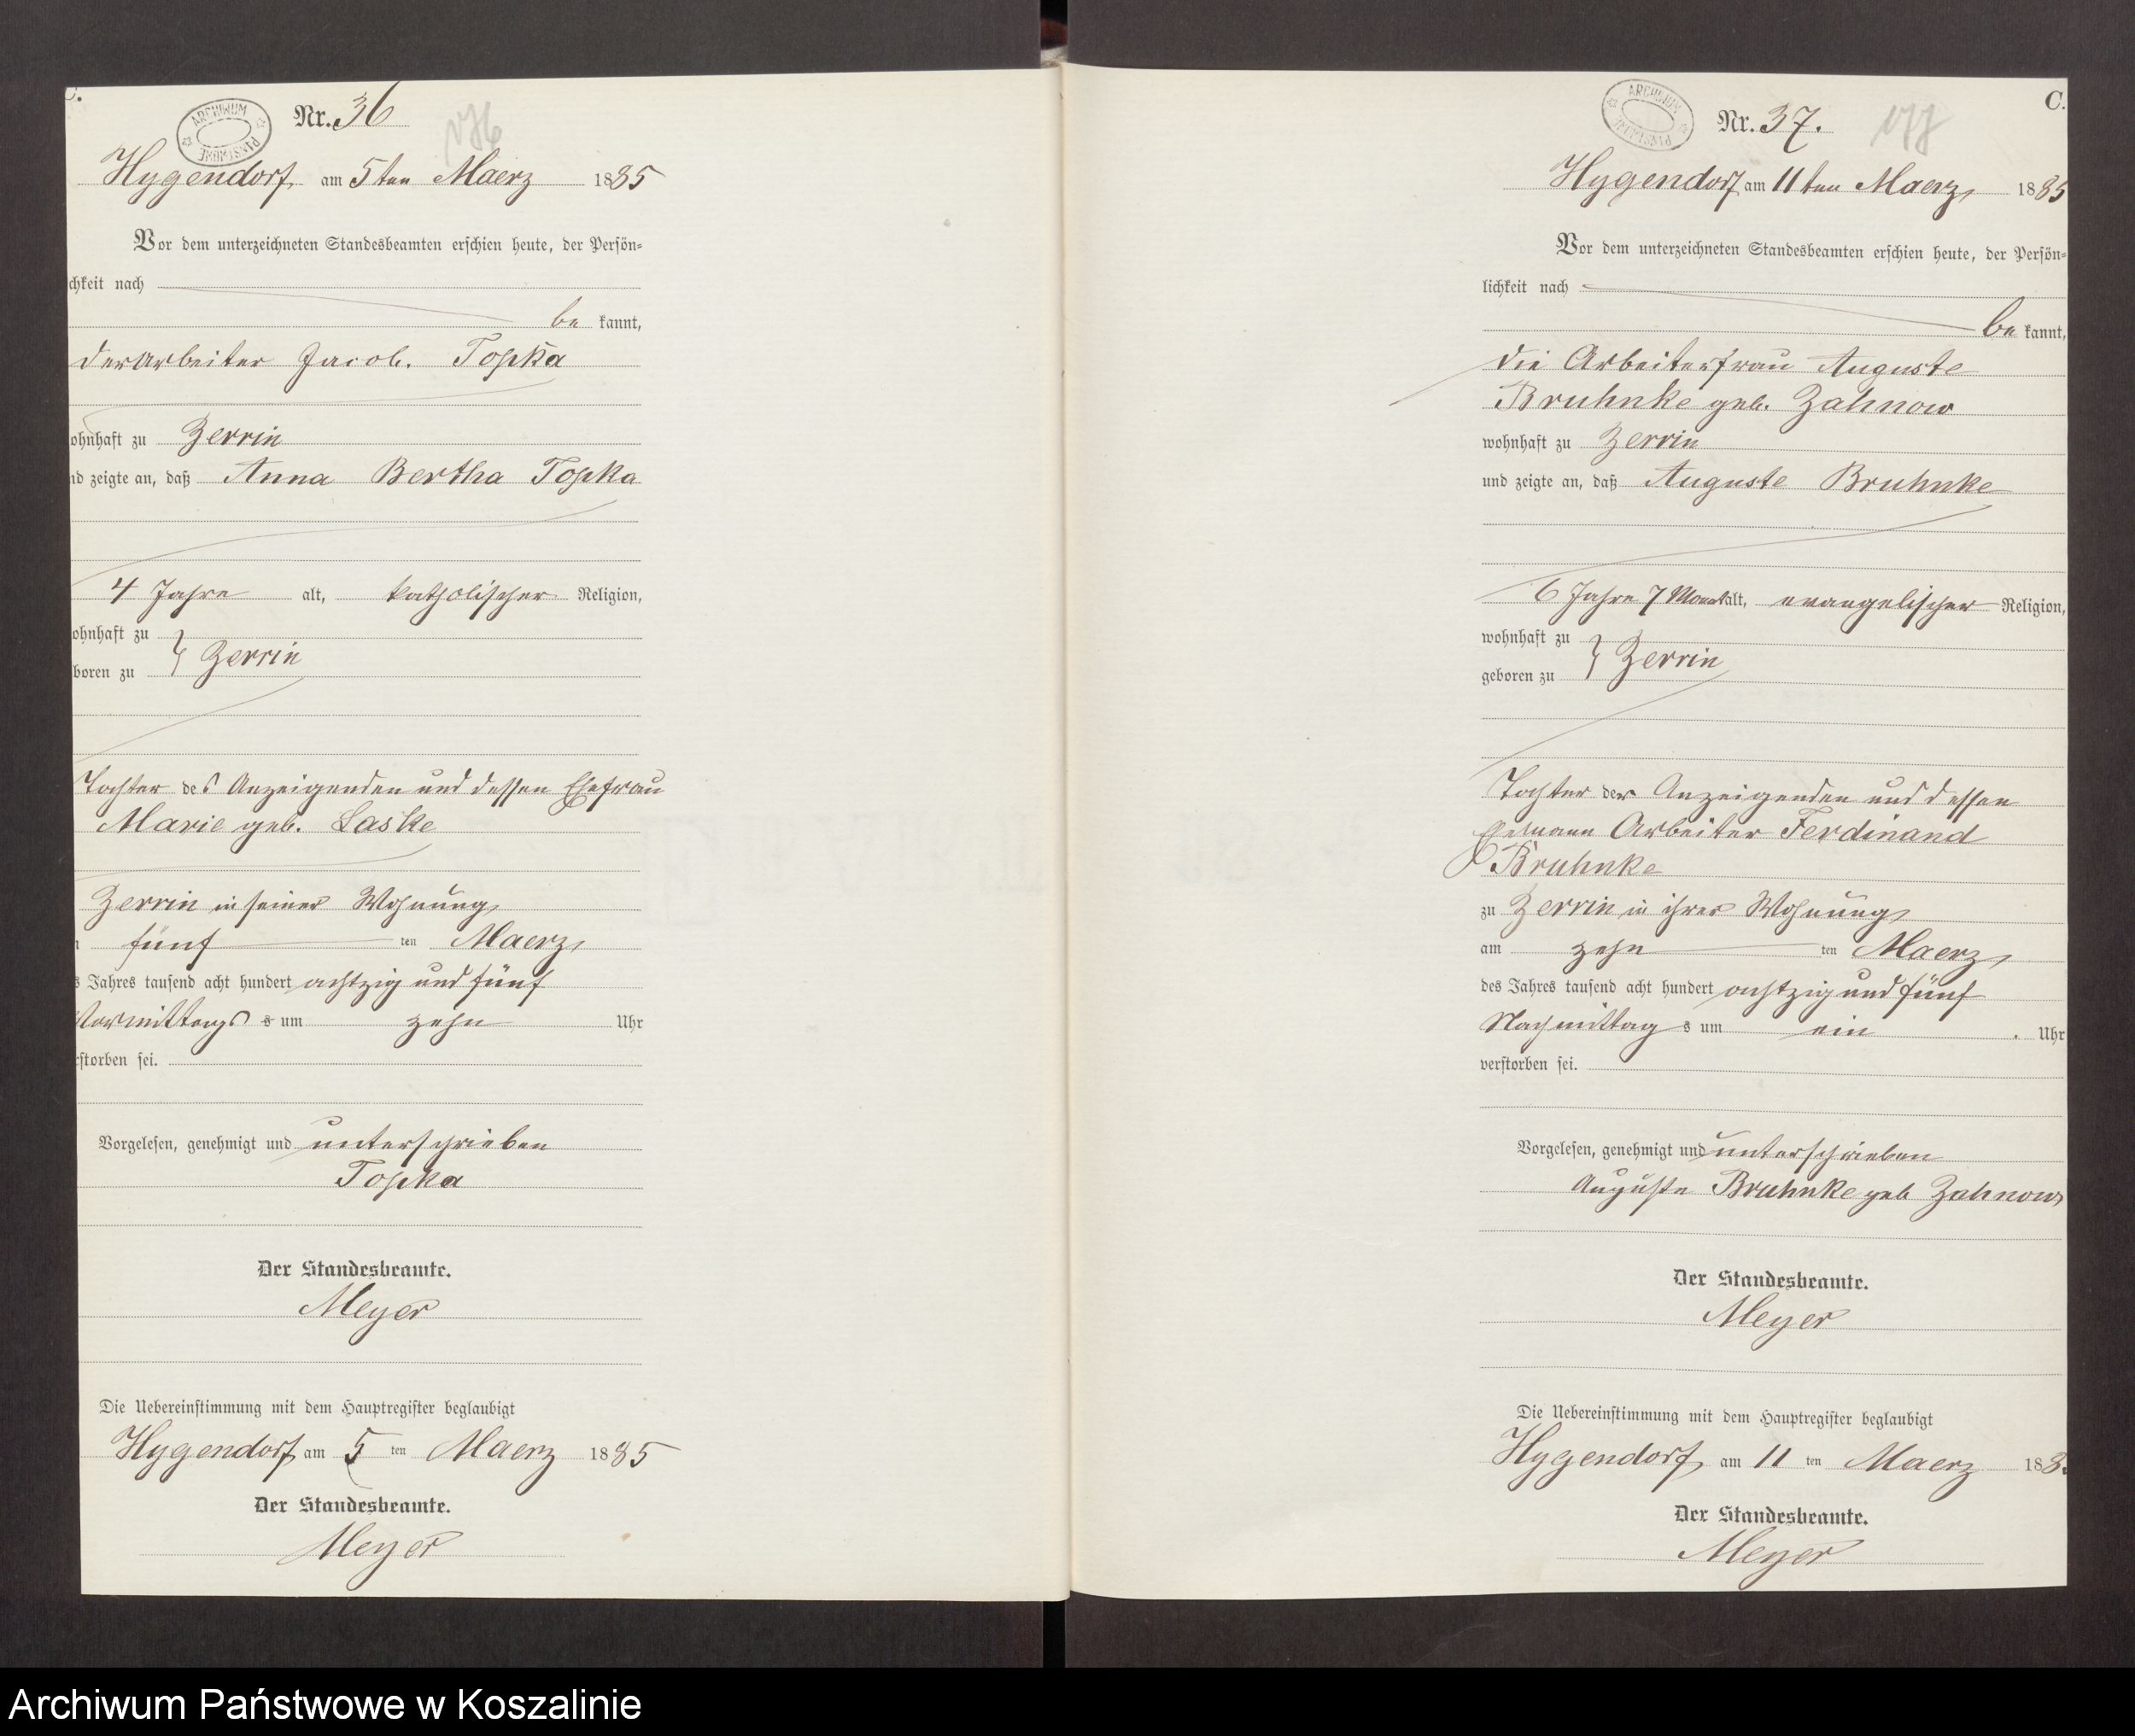 C.
ARCHIWUM PAŃSTWOWE
Nr. 36
176
Hygendorf am 5ten Maerz 1885
Vor dem unterzeichneten Standesbeamten erschien heute, der Persön-
chkeit nach
be kannt,
der Arbeiter Jacob. Topka
ohnhaft zu Zerrin
nd zeigte an, daß Anna Bertha Topka
4 Jahre alt, katholischer Religion,
ohnhaft zu
boren zu } Zerrin
Tochter des Anzeigenden und dessen Ehefrau
Marie geb. Laske
Zerrin in seiner Wohnung
fünf ten Maerz
s Jahres tausend acht hundert achtzig und fünf
Vormittags s um zehn Uhr
rstorben sei.
Vorgelesen, genehmigt und unterschrieben
Topka
Der Standesbeamte.
Meyer
Die Uebereinstimmung mit dem Hauptregister beglaubigt
Hygendorf am 5 ten Maerz 1885
Der Standesbeamte.
Meyer
C.
ARCHIWUM PAŃSTWOWE
Nr. 37.
177
Hygendorf am 11ten Maerz 1885
Vor dem unterzeichneten Standesbeamten erschien heute, der Persön-
lichkeit nach
be kannt,
die Arbeiterfrau Auguste
Bruhnke geb. Zahnow
wohnhaft zu Zerrin
und zeigte an, daß Auguste Bruhnke
6 Jahre 7 Monat alt, evangelischer Religion,
wohnhaft zu
geboren zu } Zerrin
Tochter der Anzeigenden und dessen
Ehemann Arbeiter Ferdinand
Bruhnke
zu Zerrin in ihrer Wohnung
am zehn ten Maerz
des Jahres tausend acht hundert achtzig und fünf
Nachmittag s um ein Uhr
verstorben sei.
Vorgelesen, genehmigt und unterschrieben
Auguste Bruhnke geb Zahnow
Der Standesbeamte.
Meyer
Die Uebereinstimmung mit dem Hauptregister beglaubigt
Hygendorf am 11 ten Maerz 188
Der Standesbeamte.
Meyer
Archiwum Państwowe w Koszalinie